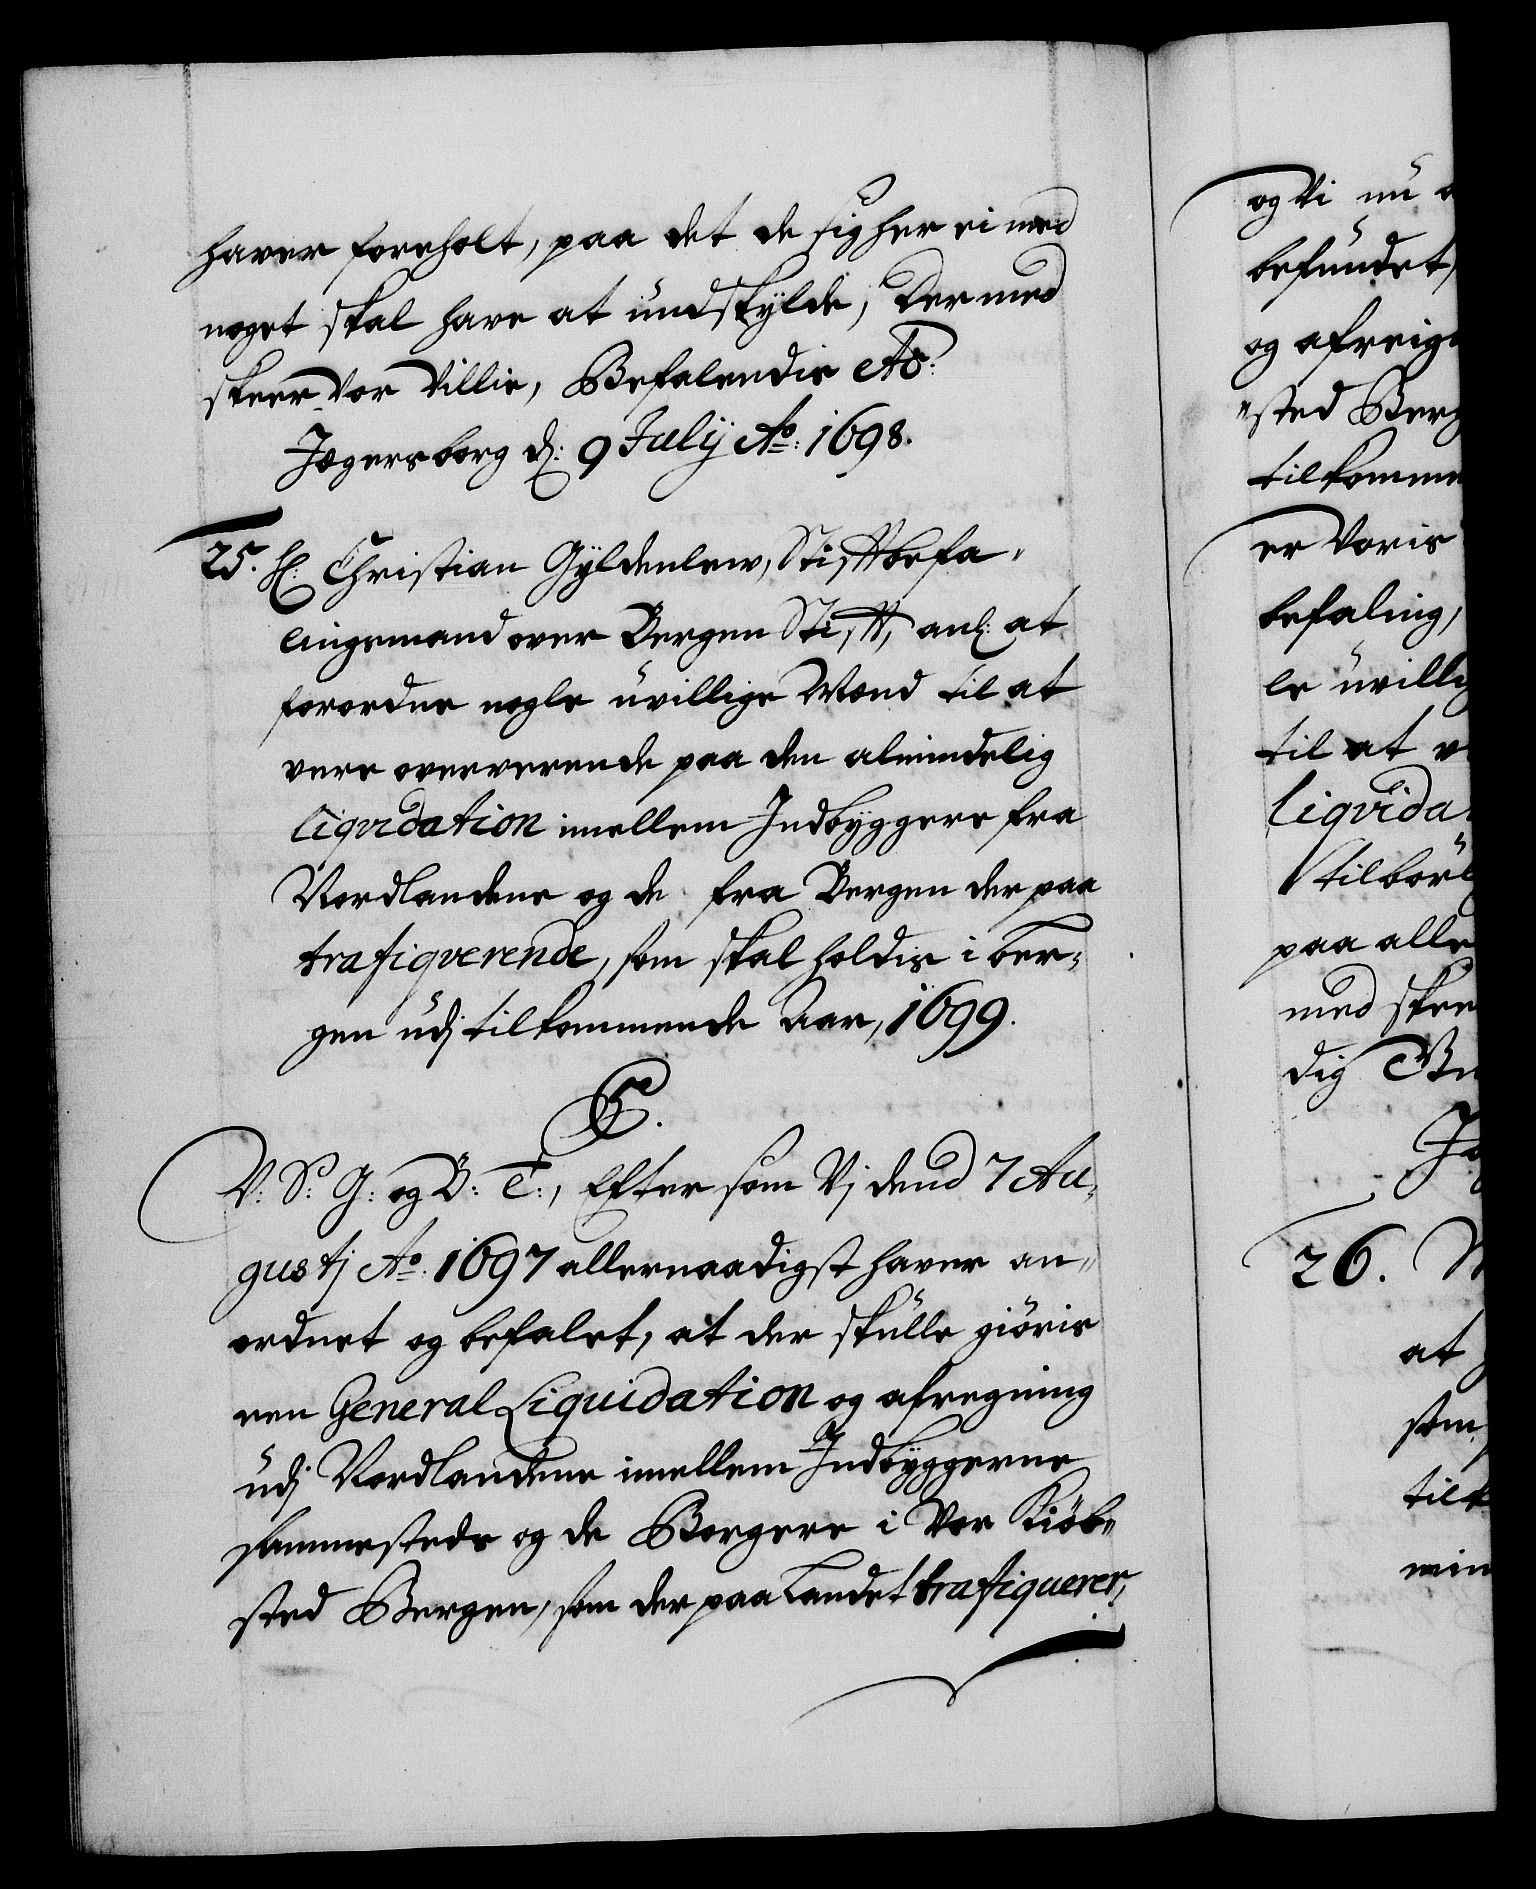 haver foreholt, paa det de sig her ei med
noget skal have at undskylde, Dermed
skeer Vor Villie, Befalendis etc:
Jegersborg d: 9 Julij Ao: 1698.
25. H: Christian Gyldenlew, Stiftbefa-
lingsmand over Bergen Stift, anl: at
forordne nogle uvillige Mænd til at
vere oververende paa den almindelig
liqvidation imellem Indbyggere fra
Nordlandene og de fra Bergen der paa
trafiqverende, som skal holdis i Ber-
gen udj tilkommende Aar, 1699.
C5.
V: S: G: og B: T:, Eftersom Vj dend 7 Au-
gustj Ao. 1697 allernaadigst haver an-
ordnet og befalet, at der skulle giöris
een General Liquidation og afregning
udj Nordlandene imellem Indbyggerne
sammesteds og de Borgere i Vor Kiöb-
sted Bergen, som der paa Landet trafiquerer,
og Vi nu
befundet,
og afreig
sted Berg
tilkomme
er Voris
befaling,
le uvillig
til at v
liqvida
tilbörl
paa alle
med skee
dig
26.
at
som
tilk
min